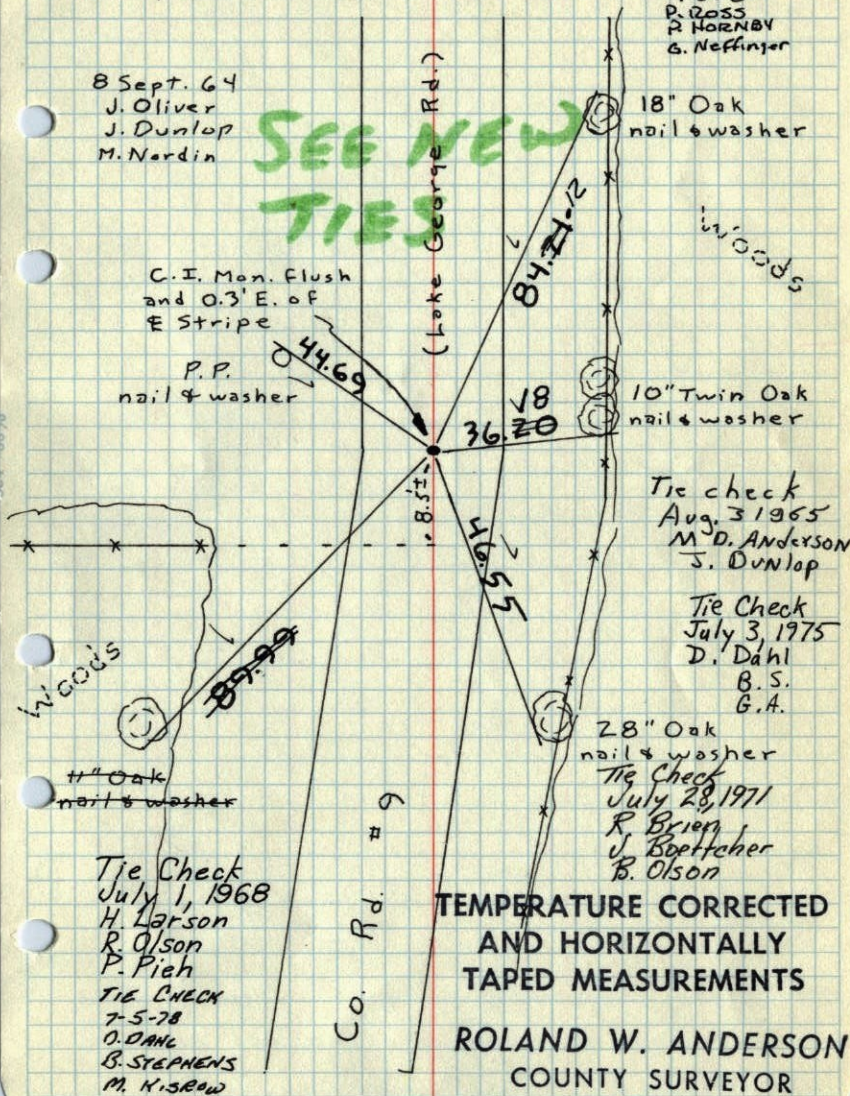 P. ROSS
P. HORNBY
G. Neffinger
8 Sept. 64
J. Oliver
J. Dunlop
M. Nordin
SEE NEW
TIES
(Lake George Rd.)
18" Oak
nail & washer
Woods
84.21.12
C.I. Mon. flush
and 0.3' E. of
℄ Stripe
44.69
P.P.
nail & washer
18
36.20
10" Twin Oak
nail & washer
8.5'±
46.55
Tie check
Aug. 3 1965
M. D. Anderson
J. Dunlop
Tie Check
July 3, 1975
D. Dahl
B. S.
G.A.
Woods
89.99
11" Oak
nail & washer
28" Oak
nail & washer
Tie Check
July 28, 1971
R. Brien
J. Boettcher
B. Olson
Co. Rd. #9
Tie Check
July 1, 1968
H. Larson
R. Olson
P. Pieh
TIE CHECK
7-5-78
D. DAHL
B. STEPHENS
M. KISROW
TEMPERATURE CORRECTED
AND HORIZONTALLY
TAPED MEASUREMENTS
ROLAND W. ANDERSON
COUNTY SURVEYOR